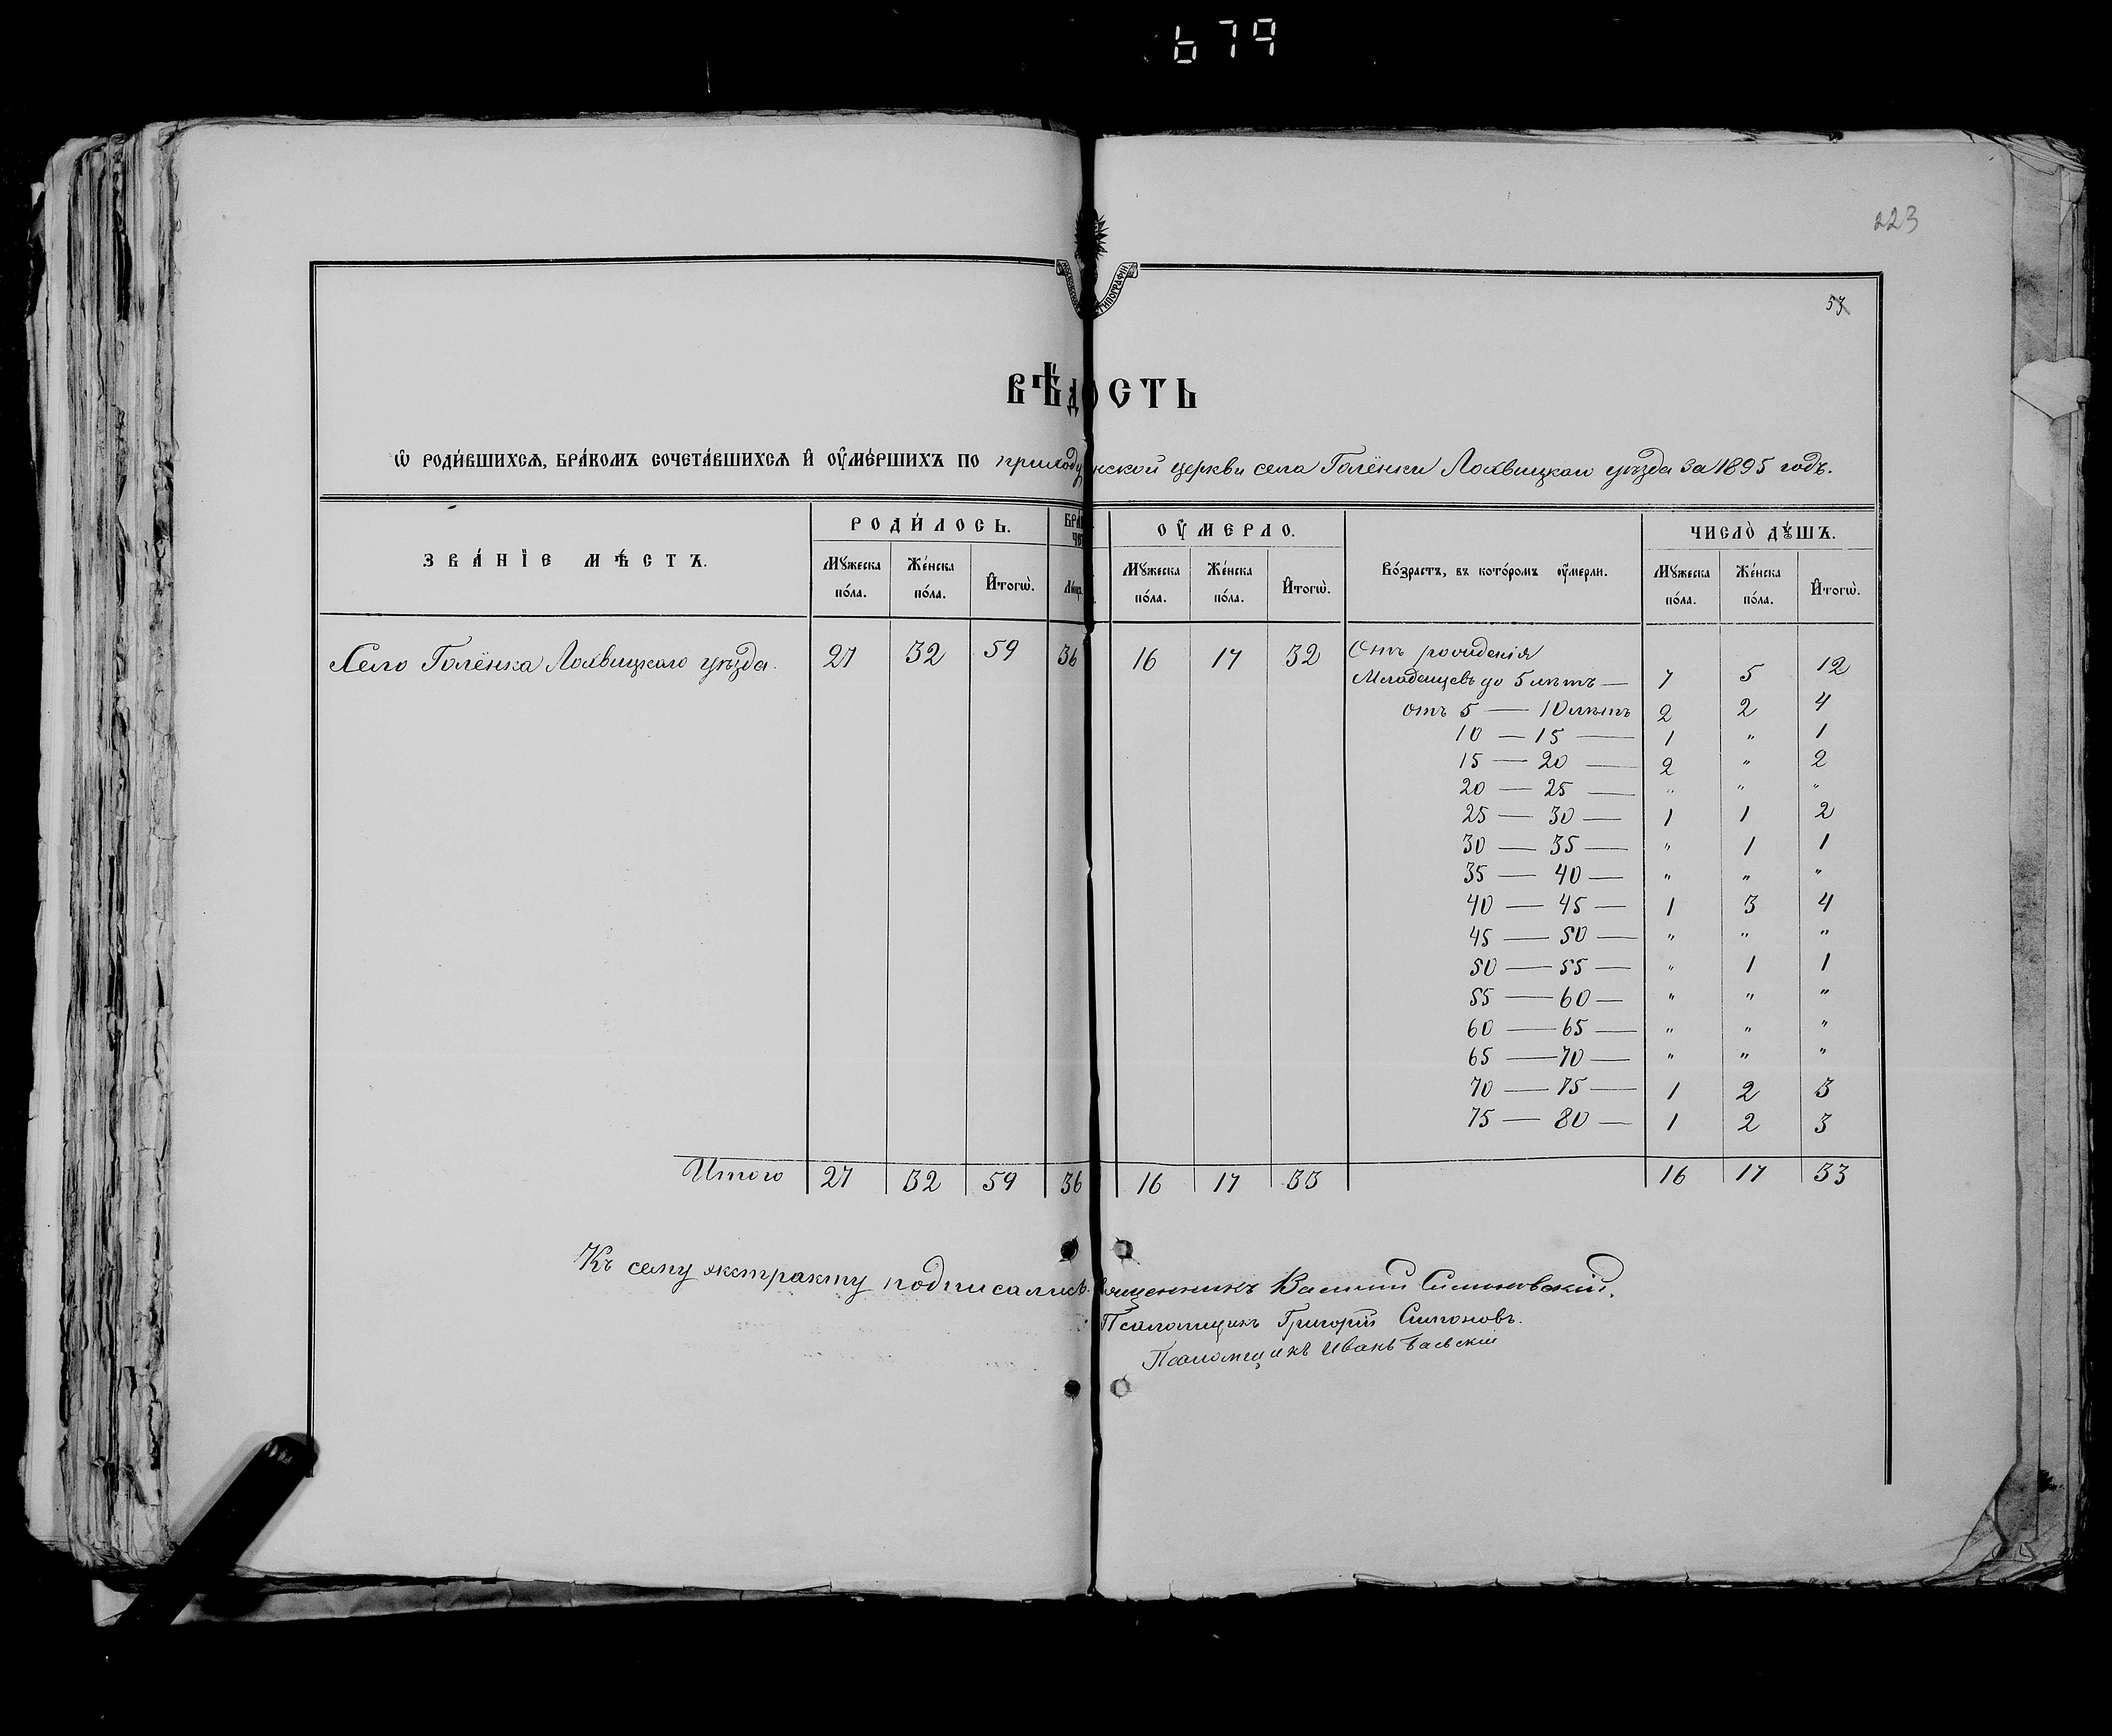 679
223
53
ВѢДОСТЬ
Ѡ҆ РОДИ́ВШИХСѦ, БРА́КОМЪ СОЧЕТА́ВШИХСѦ И҆ ОУ҆МЕ́РШИХЪ ПО приходу нской церкви села Голёнки Лохвицкаго уѣзда за 1895 годъ.
ЗВА́НЇЕ МѢ́СТЪ. РОДИ́ЛОСЬ. БРА ОУ҆МЕРЛО. Во́зрастъ, въ кото́ромъ оу҆мерли. ЧИСЛО̀ ДꙊ́ШЪ.
Мꙋжеска по́ла. Же́нска по́ла. И҆того̀. Мꙋжеска по́ла. Же́нска по́ла. И҆того̀. Мꙋжеска по́ла. Же́нска по́ла. И҆того̀.
Село Голёнка Лохвицкаго уѣзда. 27 32 59 36 16 17 32 Отъ рожденія
Младенцевъ до 5 лѣтъ — 7 5 12
отъ 5 — 10 лѣтъ 2 2 4
10 — 15 — 1 " 1
15 — 20 — 2 " 2
20 — 25 — " " "
25 — 30 — 1 1 2
30 — 35 — " 1 1
35 — 40 — " " "
40 — 45 — 1 3 4
45 — 50 — " " "
50 — 55 — " 1 1
55 — 60 — " " "
60 — 65 — " " "
65 — 70 — " " "
70 — 75 — 1 2 3
75 — 80 — 1 2 3
Итого 27 32 59 36 16 17 33 16 17 33
Къ сему экстракту подписались: Священникъ Василій Симоновскій.
Псаломщикъ Григорій Симоновъ.
Псаломщикъ Иванъ